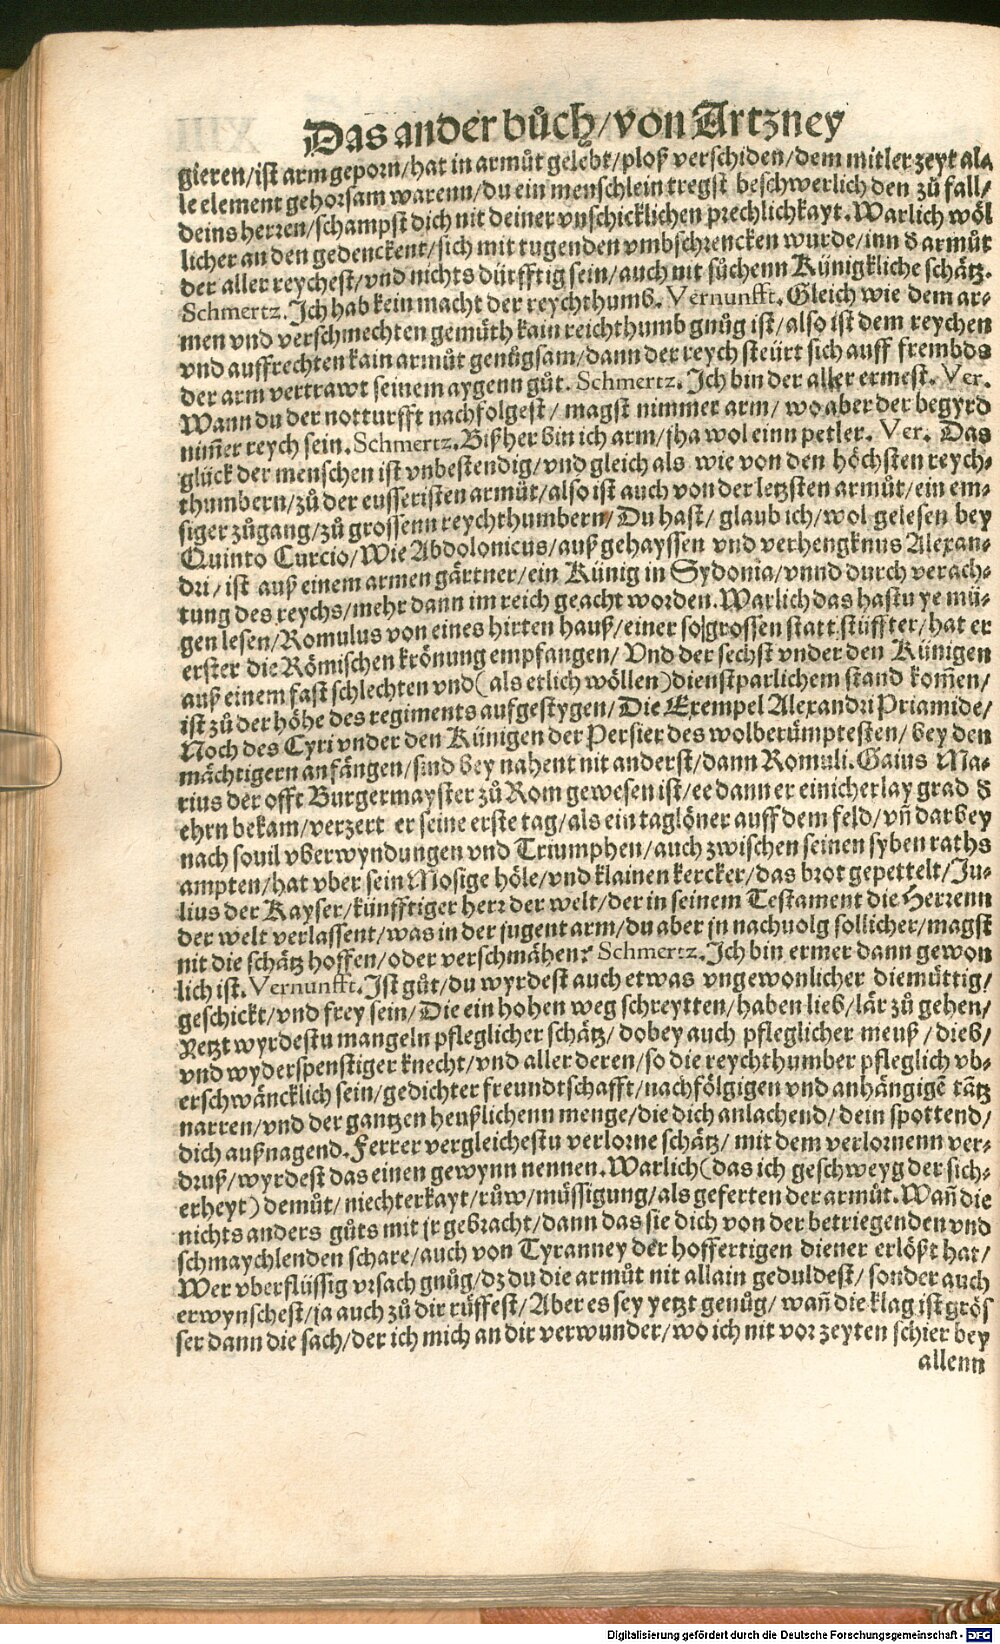 Das ander bůch/von Artzney
gieren/ist arm geporn/hat in armůt gelebt/ploß verschiden/dem mitler zeyt ala
le element gehorsam warenn/du ein menschlein tregst beschwerlich den zů fall/
deins herren/schampst dich nit deiner vnschicklichen prechlichkayt. Warlich wöl
licher an den gedenckent/sich mit tugenden vmbschrencken wurde/inn d armůt
der aller reychest/vnd nichts dürfftig sein/auch nit sůchenn Künigkliche schätz.
Schmertz. Ich hab kein macht der reychthumb. Vernunfft. Gleich wie dem ar⸗
men vnd verschmechten gemüth kain reichthumb gnůg ist/also ist dem reychen
vnd auffrechten kain armůt genůgsam/dann der reych steürt sich auff frembds
der arm vertrawt seinem aygenn gůt. Schmertz. Ich bin der aller ermest. Ver.
Wann du der notturfft nachfolgest/ magst nimmer arm/ wo aber der begyrd
nim̄er reych sein. Schmertz. Bißher bin ich arm/jha wol einn petler. Ver. Das
glück der menschen ist vnbestendig/vnd gleich als wie von den höchsten reych⸗
thumbern/zů der eusseristen armůt/also ist auch von der letzsten armůt/ein em⸗
siger zůgang/zů grossenn reychthumbern/Du hast/ glaub ich/wol gelesen bey
Quinto Curcio/Wie Abdolonicus/auß gehayssen vnd verhengknus Alexan⸗
dri/ist auß einem armen gärtner/ein Künig in Sydonia/vnnd durch verach⸗
tung des reychs/mehr dann im reich geacht worden. Warlich das hastu ye mü⸗
gen lesen/Romulus von eines hirten hauß/einer so grossen statt stüffter/hat er
erster die Römischen krönung empfangen/ Vnd der sechst vnder den Künigen
auß einem fast schlechten vnd(als etlich wöllen)dienstparlichem stand kom̄en/
ist zů der höhe des regiments aufgestygen/Die Exempel Alexandri Priamide/
Noch des Cyri vnder den Künigen der Persier des wolberümptesten/ bey den
mächtigern anfängen/sind bey nahent nit anderst/dann Romuli. Gaius Ma⸗
rius der offt Burgermayster zů Rom gewesen ist/ee dann er einicherlay grad d
ehrn bekam/verzert er seine erste tag/als ein taglöner auff dem feld/vn̄ darbey
nach souil vberwyndungen vnd Triumphen/auch zwischen seinen syben raths
ampten/hat vber sein Mosige höle/vnd klainen kercker/das brot gepettelt/Ju⸗
lius der Kayser/künfftiger herr der welt/der in seinem Testament die Herrenn
der welt verlassent/was in der jugent arm/du aber jn nachuolg sollicher/magst
nit die schätz hoffen/oder verschmähen? Schmertz. Ich bin ermer dann gewon
lich ist. Vernunfft. Ist gůt/du wyrdest auch etwas vngewonlicher diemůttig/
geschickt/vnd frey sein/Die ein hohen weg schreytten/haben lieb/lär zů gehen/
Yetzt wyrdestu mangeln pfleglicher schätz/ dobey auch pfleglicher meuß/dieb/
vnd wyderspenstiger knecht/vnd aller deren/so die reychthumber pfleglich vb⸗
erschwäncklich sein/gedichter freundtschafft/nachfölgigen vnd anhängigē tätz
narren/vnd der gantzen heußlichenn menge/die dich anlachend/dein spottend/
dich außnagend. Ferrer vergleichestu verlorne schätz/ mit dem verlornenn ver⸗
druß/wyrdest das einen gewynn nennen. Warlich(das ich geschweyg der sich⸗
erheyt)demůt/niechterkayt/růw/müssigung/als geferten der armůt. Wan̄ die
nichts anders gůts mit jr gebracht/dann das sie dich von der betriegenden vnd
schmaychlenden schare/auch von Tyranney der hoffertigen diener erlößt hat/
Wer vberflüssig vrsach gnůg/dz du die armůt nit allain geduldest/ sonder auch
erwynschest/ja auch zů dir rüffest/Aber es sey yetzt genůg/ wan̄ die klag ist grös
ser dann die sach/der ich mich an dir verwunder/wo ich nit vor zeyten schier bey
allenn
Digitalisierung gefördert durch die Deutsche Forschungsgemeinschaft - DFG